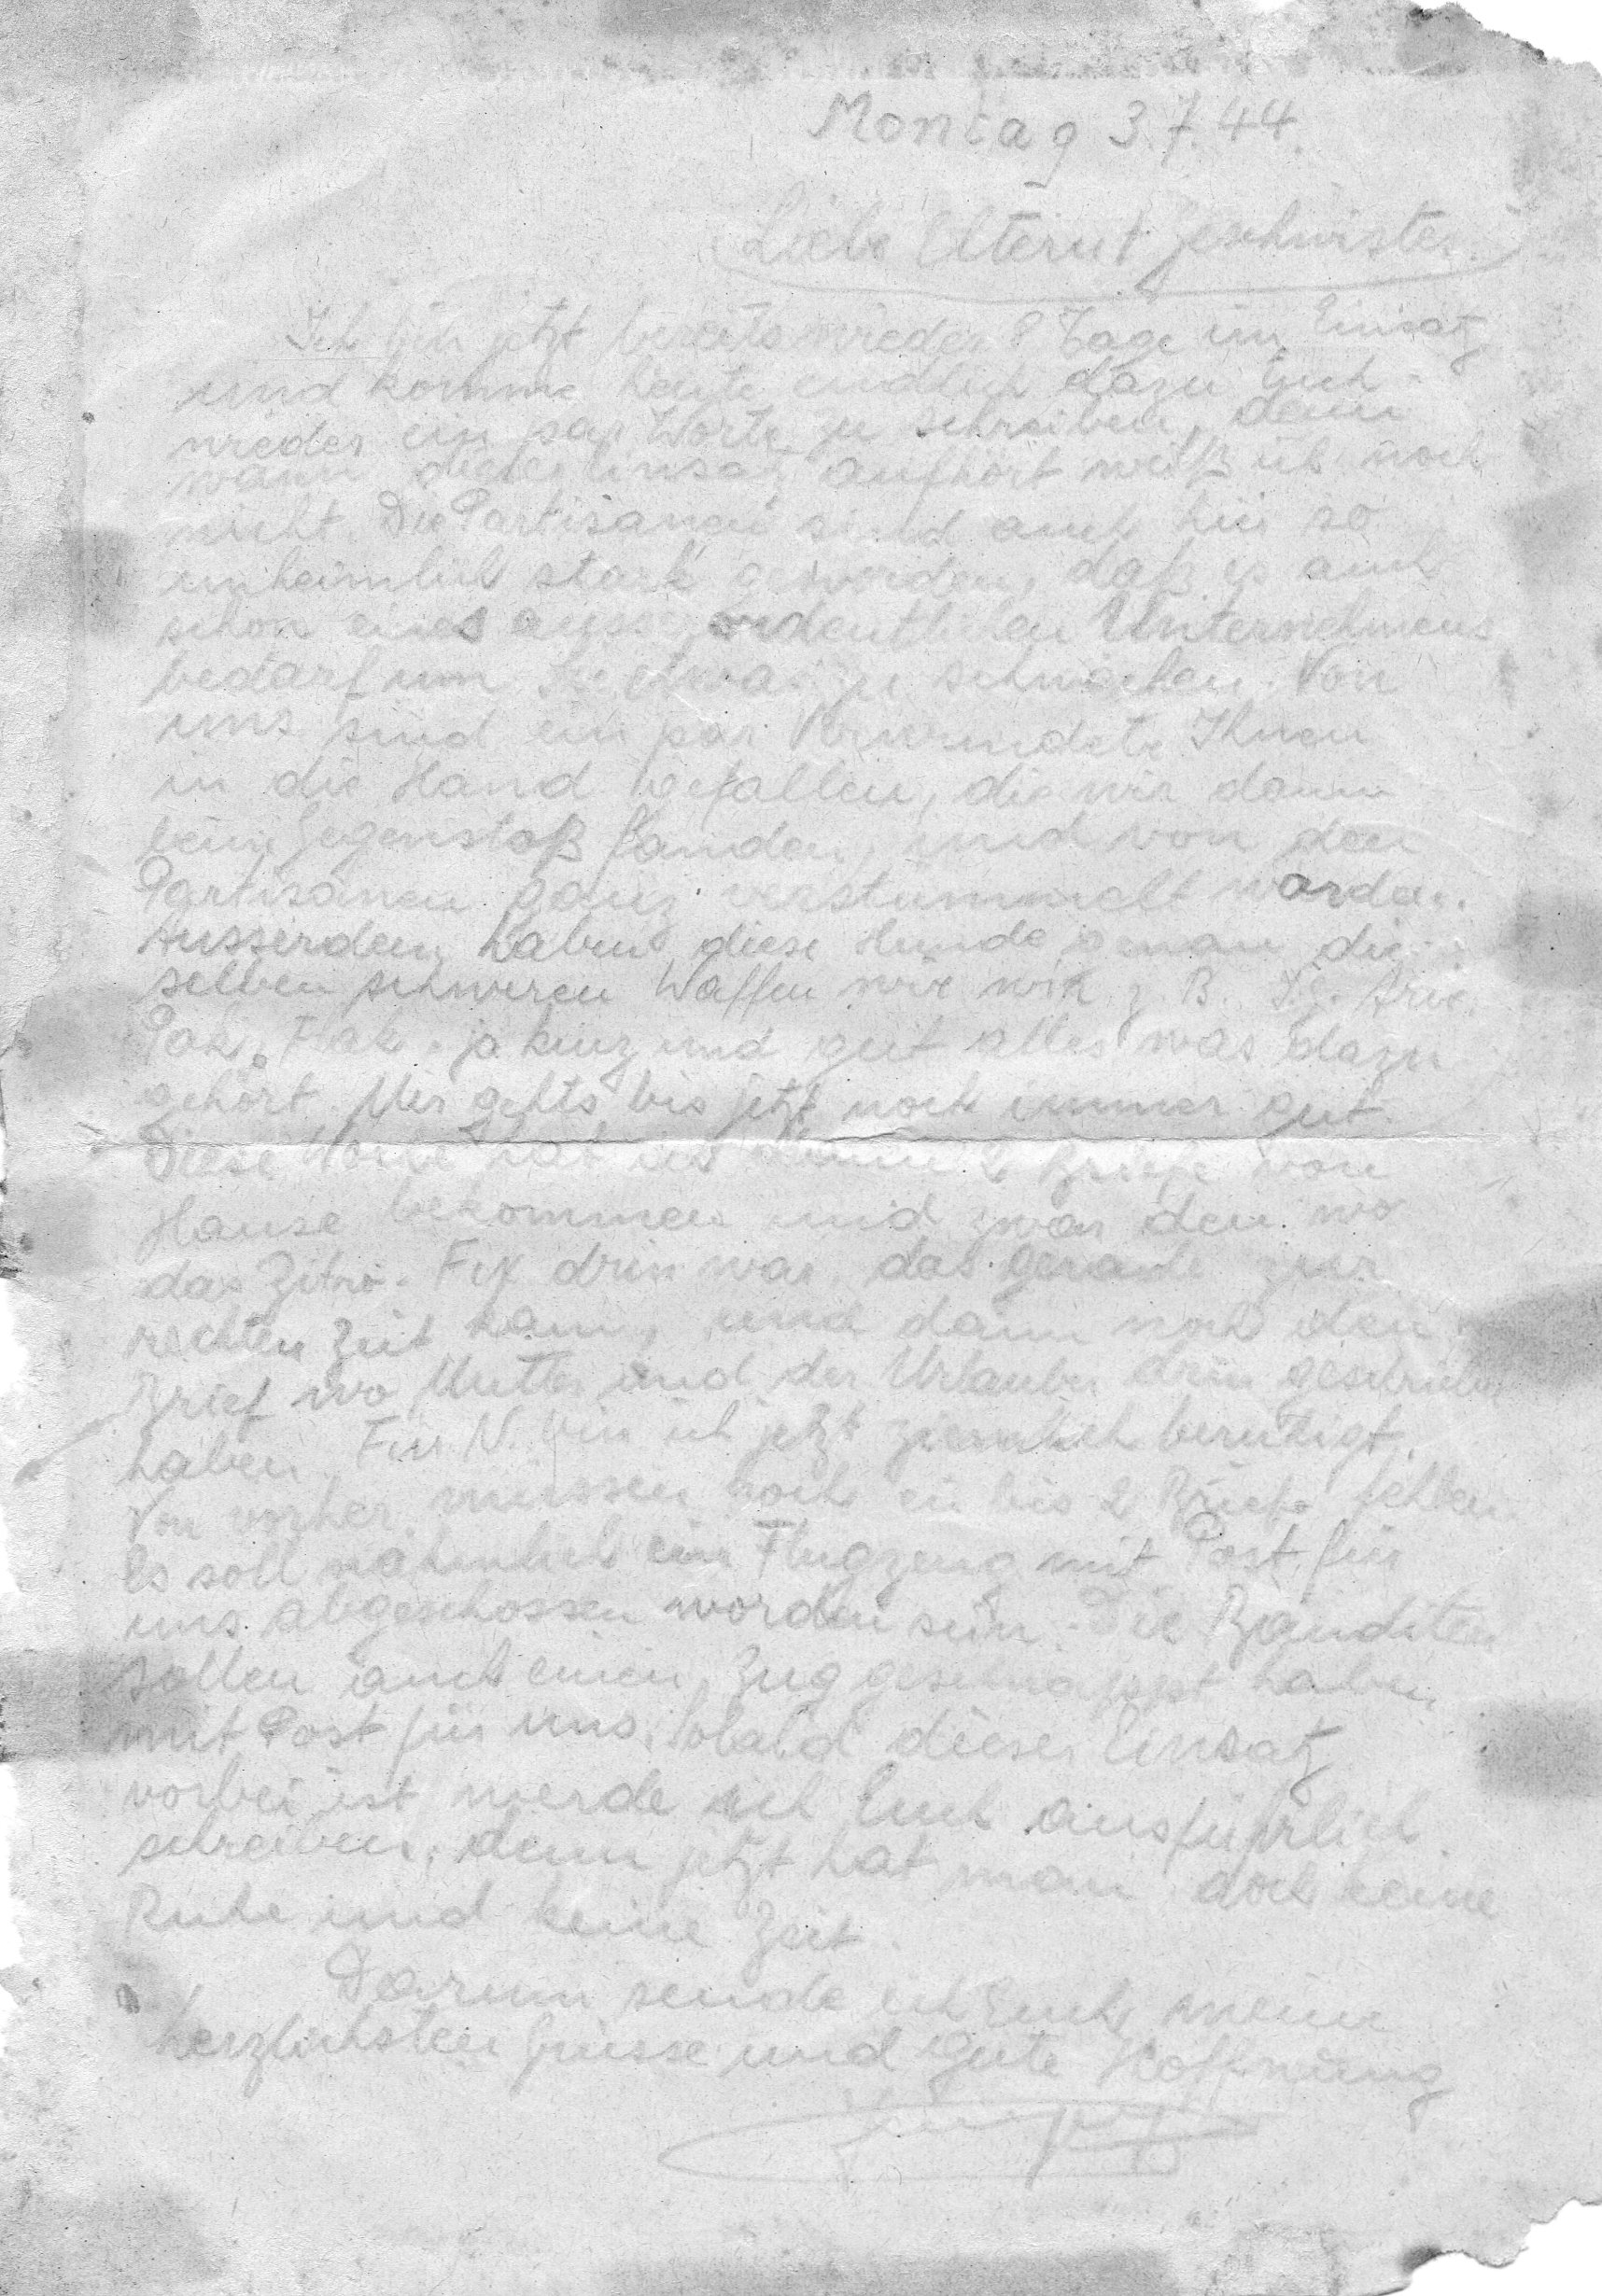 Montag 3.7.44.
Liebe Eltern u. Geschwister.
Ich bin jetzt bereits wieder 8 Tage im Einsatz
und komme heute endlich dazu Euch
wieder ein par Worte zu schreiben, denn
wann dieser Einsatz aufhört weiß ich noch
nicht. Die Partisanen sind auch hier so
unheimlich stark geworden, daß es auch
schon eines ausserordentlichen Unternehmens
bedarf um Sie etwas zu schwächen. Von
uns sind ein par Verwundete Ihnen
in die Hand gefallen, die wir dann
beim Gegenstoß fanden, und von den
Partisanen ganz verstümmelt warden.
Ausserdem haben diese Hunde genau die-
selben schweren Waffen wie wir z. B. I.G. Arie
Pak, Flak, ja kurz und gut alles was dazu
gehört. Mir gehts bis jetzt noch immer gut.
Diese Woche hab ich 2 Briefe von
Hause bekommen und zwar den wo
das Zitro-Fix drin war, das gerade zur
rechten Zeit kam, und dann noch den
Brief wo Mutter und der Urlauber drin geschrieben
haben. Für N. bin ich jetzt ziemlich beruhigt.
Von vorher müssen noch ein bis 2 Briefe fehlen.
Es soll nähmlich ein Flugzeug mit Post für
uns abgeschossen worden sein. Die Banditen
sollen auch einen Zug geschnappt haben,
mit Post für uns. Sobald dieser Einsatz
vorbei ist werde ich Euch ausführlich
schreiben, denn jetzt hat man doch keine
Ruhe und keine Zeit.
Darum sende ich Euch meine
herzlichsten Grüsse und gute Hoffnung